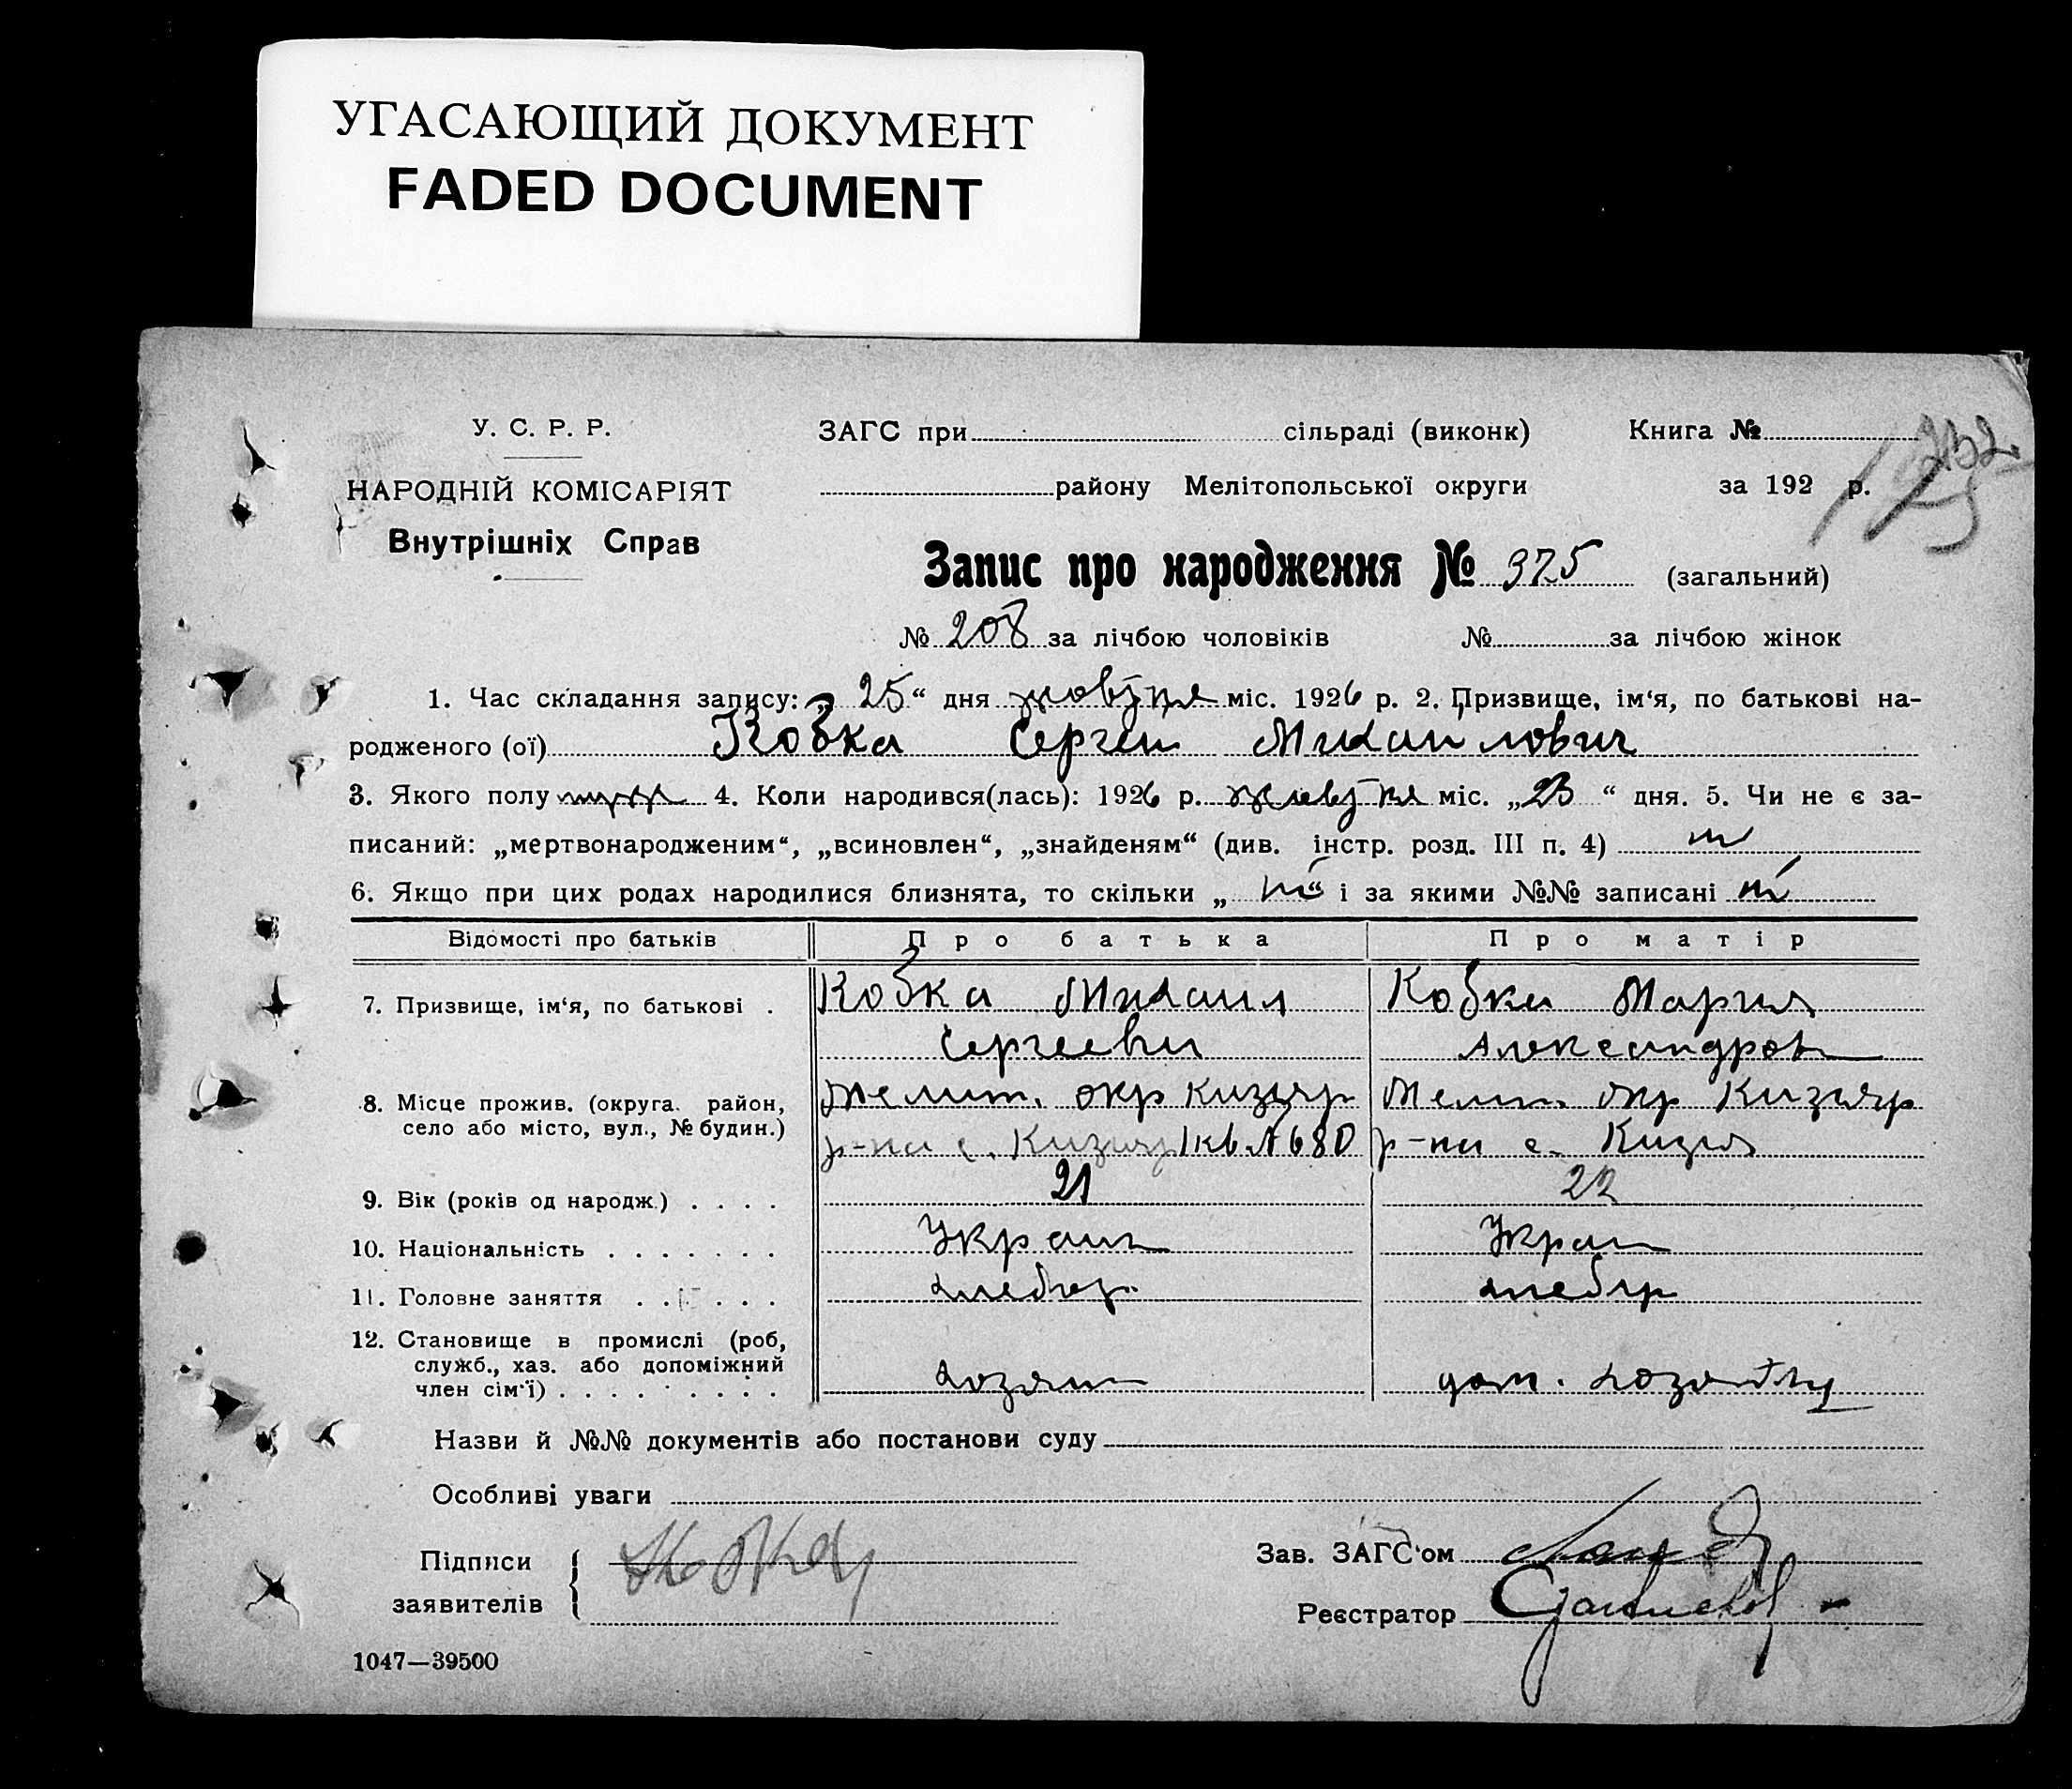 УГАСАЮЩИЙ ДОКУМЕНТ
FADED DOCUMENT
У. С. Р. Р.
НАРОДНІЙ КОМІСАРІЯТ
Внутрішніх Справ
ЗАГС при сільраді (виконк)
Книга №
232
району Мелітопольської округи
за 192 р.
Запис про народження № 375 (загальний)
№ 208 за лічбою чоловіків № за лічбою жінок
1. Час складання запису: „ 25 “ дня жовтня міс. 1926 р. 2. Призвище, ім‘я, по батькові на-
родженого (ої) Кобка Сергей Михайлович
3. Якого полу муж 4. Коли народився(лась): 1926 р. жовтня міс. „23 “ дня. 5. Чи не є за-
писаний: „мертвонародженим“, „всиновлен“, „знайденям“ (див. інстр. розд. III п. 4)
6. Якщо при цих родах народилися близнята, то скільки „ ні “ і за якими №№ записані ні
Відомості про батьків Про батька Про матір
7. Призвище, ім‘я, по батькові . Кобка Михаил Кобка Мария
Сергееви Александров
8. Місце прожив. (округа. район, Мелит. окр Кизияр Мелит. окр Кизияр
село або місто, вул., № будин.) р-на с. Кизияр 1 кв № 680 р-на с. Кизия
9. Вік (років од народж.) . . . . 21 22
10. Національність . . . . . . . Украин Украи
11. Головне заняття . . . . . хлебор хлебр
12. Становище в промислі (роб,
служб., хаз. або допоміжний
член сім‘ї) . . . . . . . . . хозяин дом.
Назви й №№ документів або постанови суду
Особливі уваги
Підписи
заявителів
Кобка
Зав. ЗАГС‘ом
Реєстратор
1047—39500